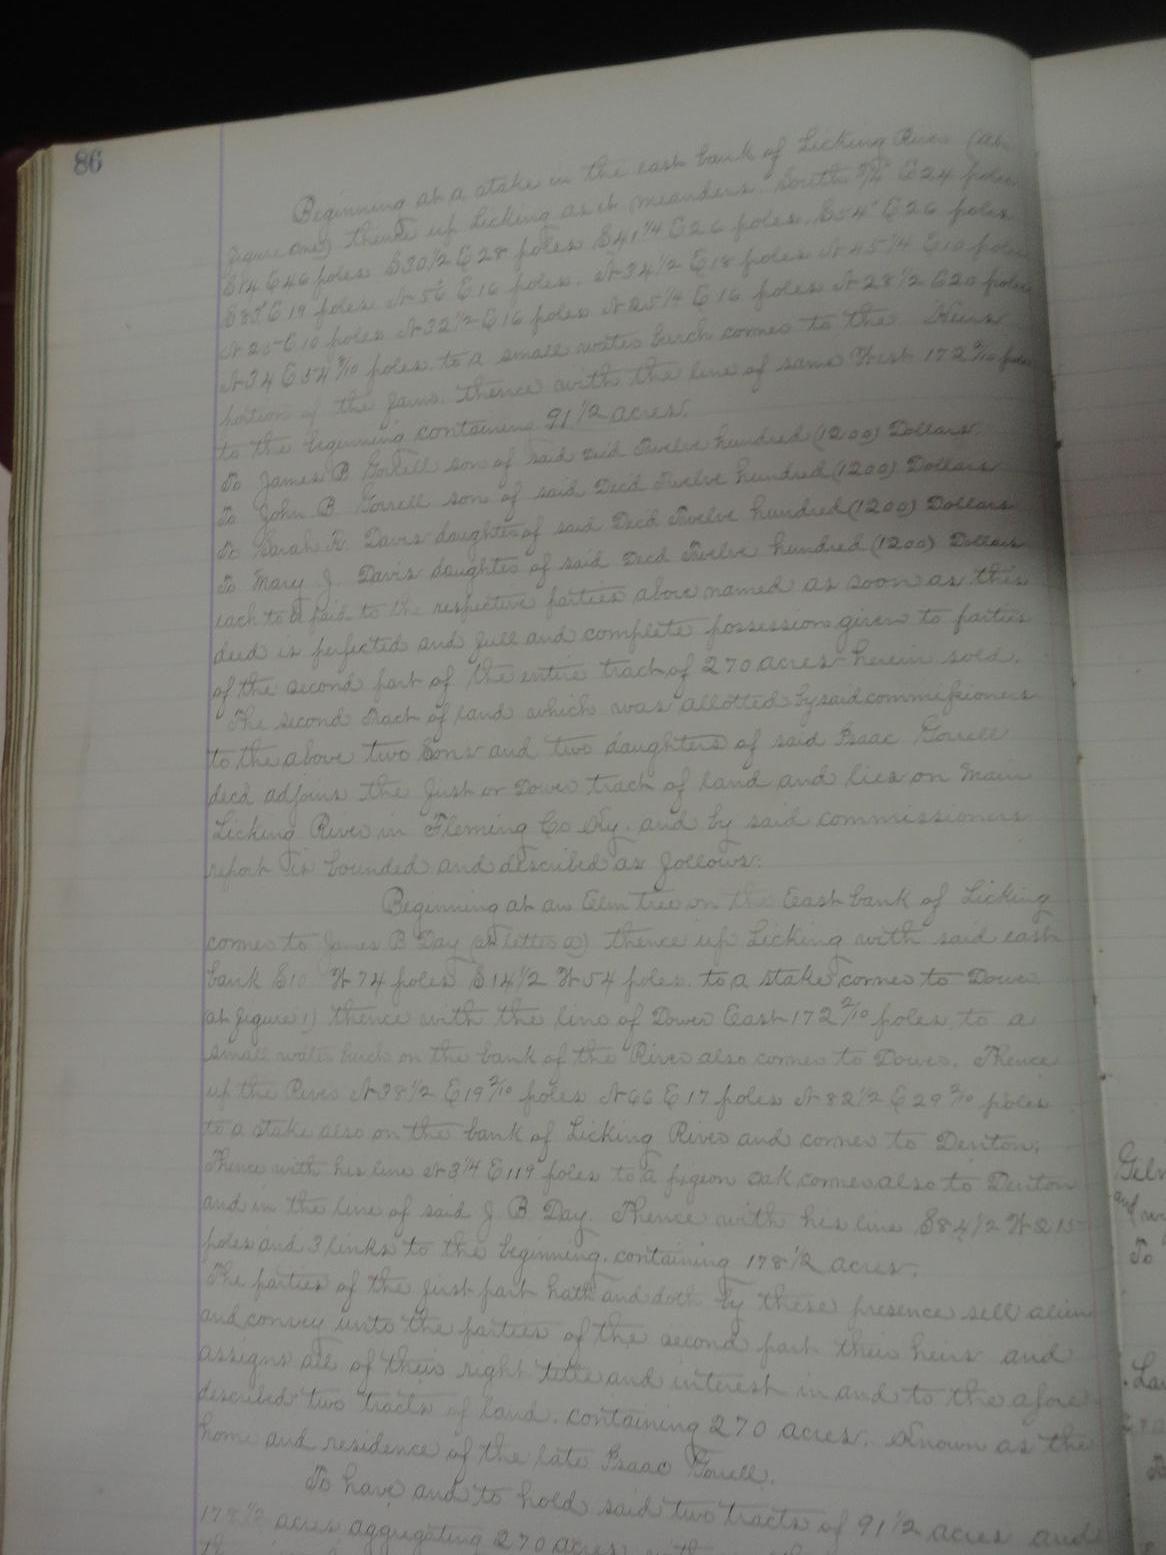 86
Beginning at a stake in the east bank of Licking River (at
figure one) thence up Licking as it meanders. South 3/4 E 24 poles
S14 E46 poles S30 1/2 E28 poles S41 1/4 E26 poles, S54 E26 poles
S83 E19 poles N 56 E16 poles. N34 1/2 E18 poles N 45 1/4 E10 poles
N 25 E10 poles N32 1/2 E16 poles N25 1/4 E 16 poles N 28 1/2 E20 poles
N34 E54 9/10 poles. to a small water birch corner to the Heirs
portion of the farm. thence with the line of same West 172 2/10 poles
to the beginning containing 91 1/2 acres.
To James B Gorrell son of said Decd Twelve hundred (1200) Dollars
To John B. Gorrell son of said Decd Twelve hundred (1200) Dollars
To Sarah F. Davis daughter of said Decd Twelve hundred (1200) Dollars
To Mary J. Davis daughter of said Decd Twelve hundred (1200) Dollars
each to be paid to the respective parties above named as soon as this
deed is perfected and full and complete possession given to parties
of the second part of the entire tract of 270 acres herein sold.
The second tract of land which was allotted by said commissioners
to the above two Sons and two daughters of said Isaac Gorrell
decd adjoins the first or Dower tract of land and lies on Main
Licking River in Fleming Co Ky. and by said commissioners
report is bounded and described as follows:
Beginning at an Elm tree on the East bank of Licking
corner to James B Day (at letter a) thence up Licking with said east
bank S10 W 74 poles S14 1/2 W 54 poles. to a stake corner to Dower
at figure 1) thence with the line of Dower East 172 2/10 poles to a
small water birch on the bank of the River also corner to Dower. Thence
up the River N38 1/2 E19 2/10 poles N66 E17 poles N 82 1/2 E 29 2/10 poles
to a stake also on the bank of Licking River and corner to Denton.
Thence with his line N 3 1/4 E 119 poles to a pigeon oak corner also to Denton
and in the line of said J. B. Day. Thence with his line S84 1/2 W 215
poles and 3 links to the beginning. containing 178 1/2 acres.
The parties of the first part hath and doth by these presence sell alien
and convey unto the parties of the second part their heirs and
assigns all of their right title and interest in and to the afore
described two tracts of land. containing 270 acres. Known as the
home and residence of the late Isaac Gorrell.
To have and to hold said two tracts of 91 1/2 acres and
178 1/2 acres aggregating 270 acres
and
To